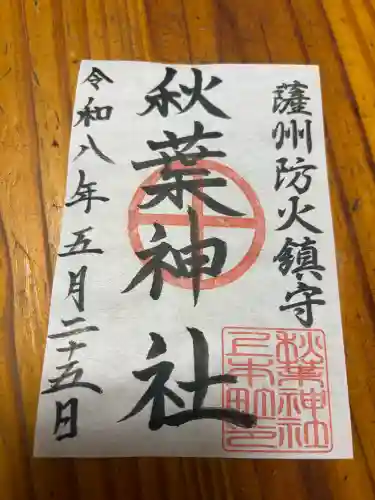 薩州防火鎮守
秋葉神社
令和八年五月二十五日
秋葉神社